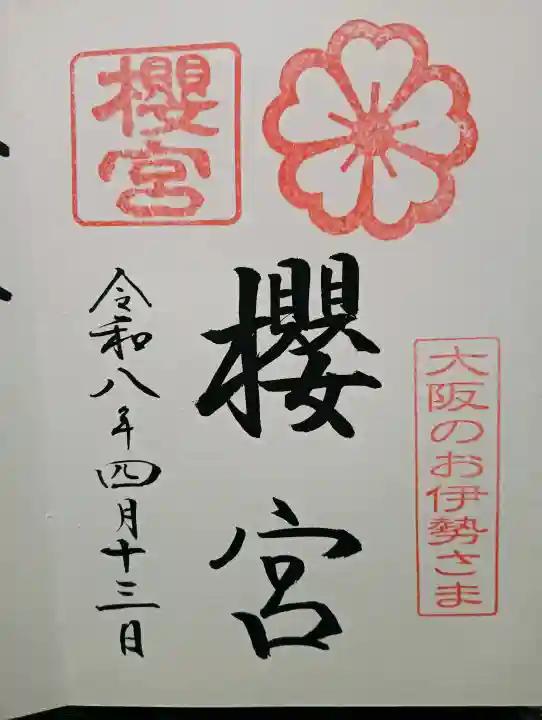 大阪のお伊勢さま
櫻宮
櫻宮
令和八年四月十三日